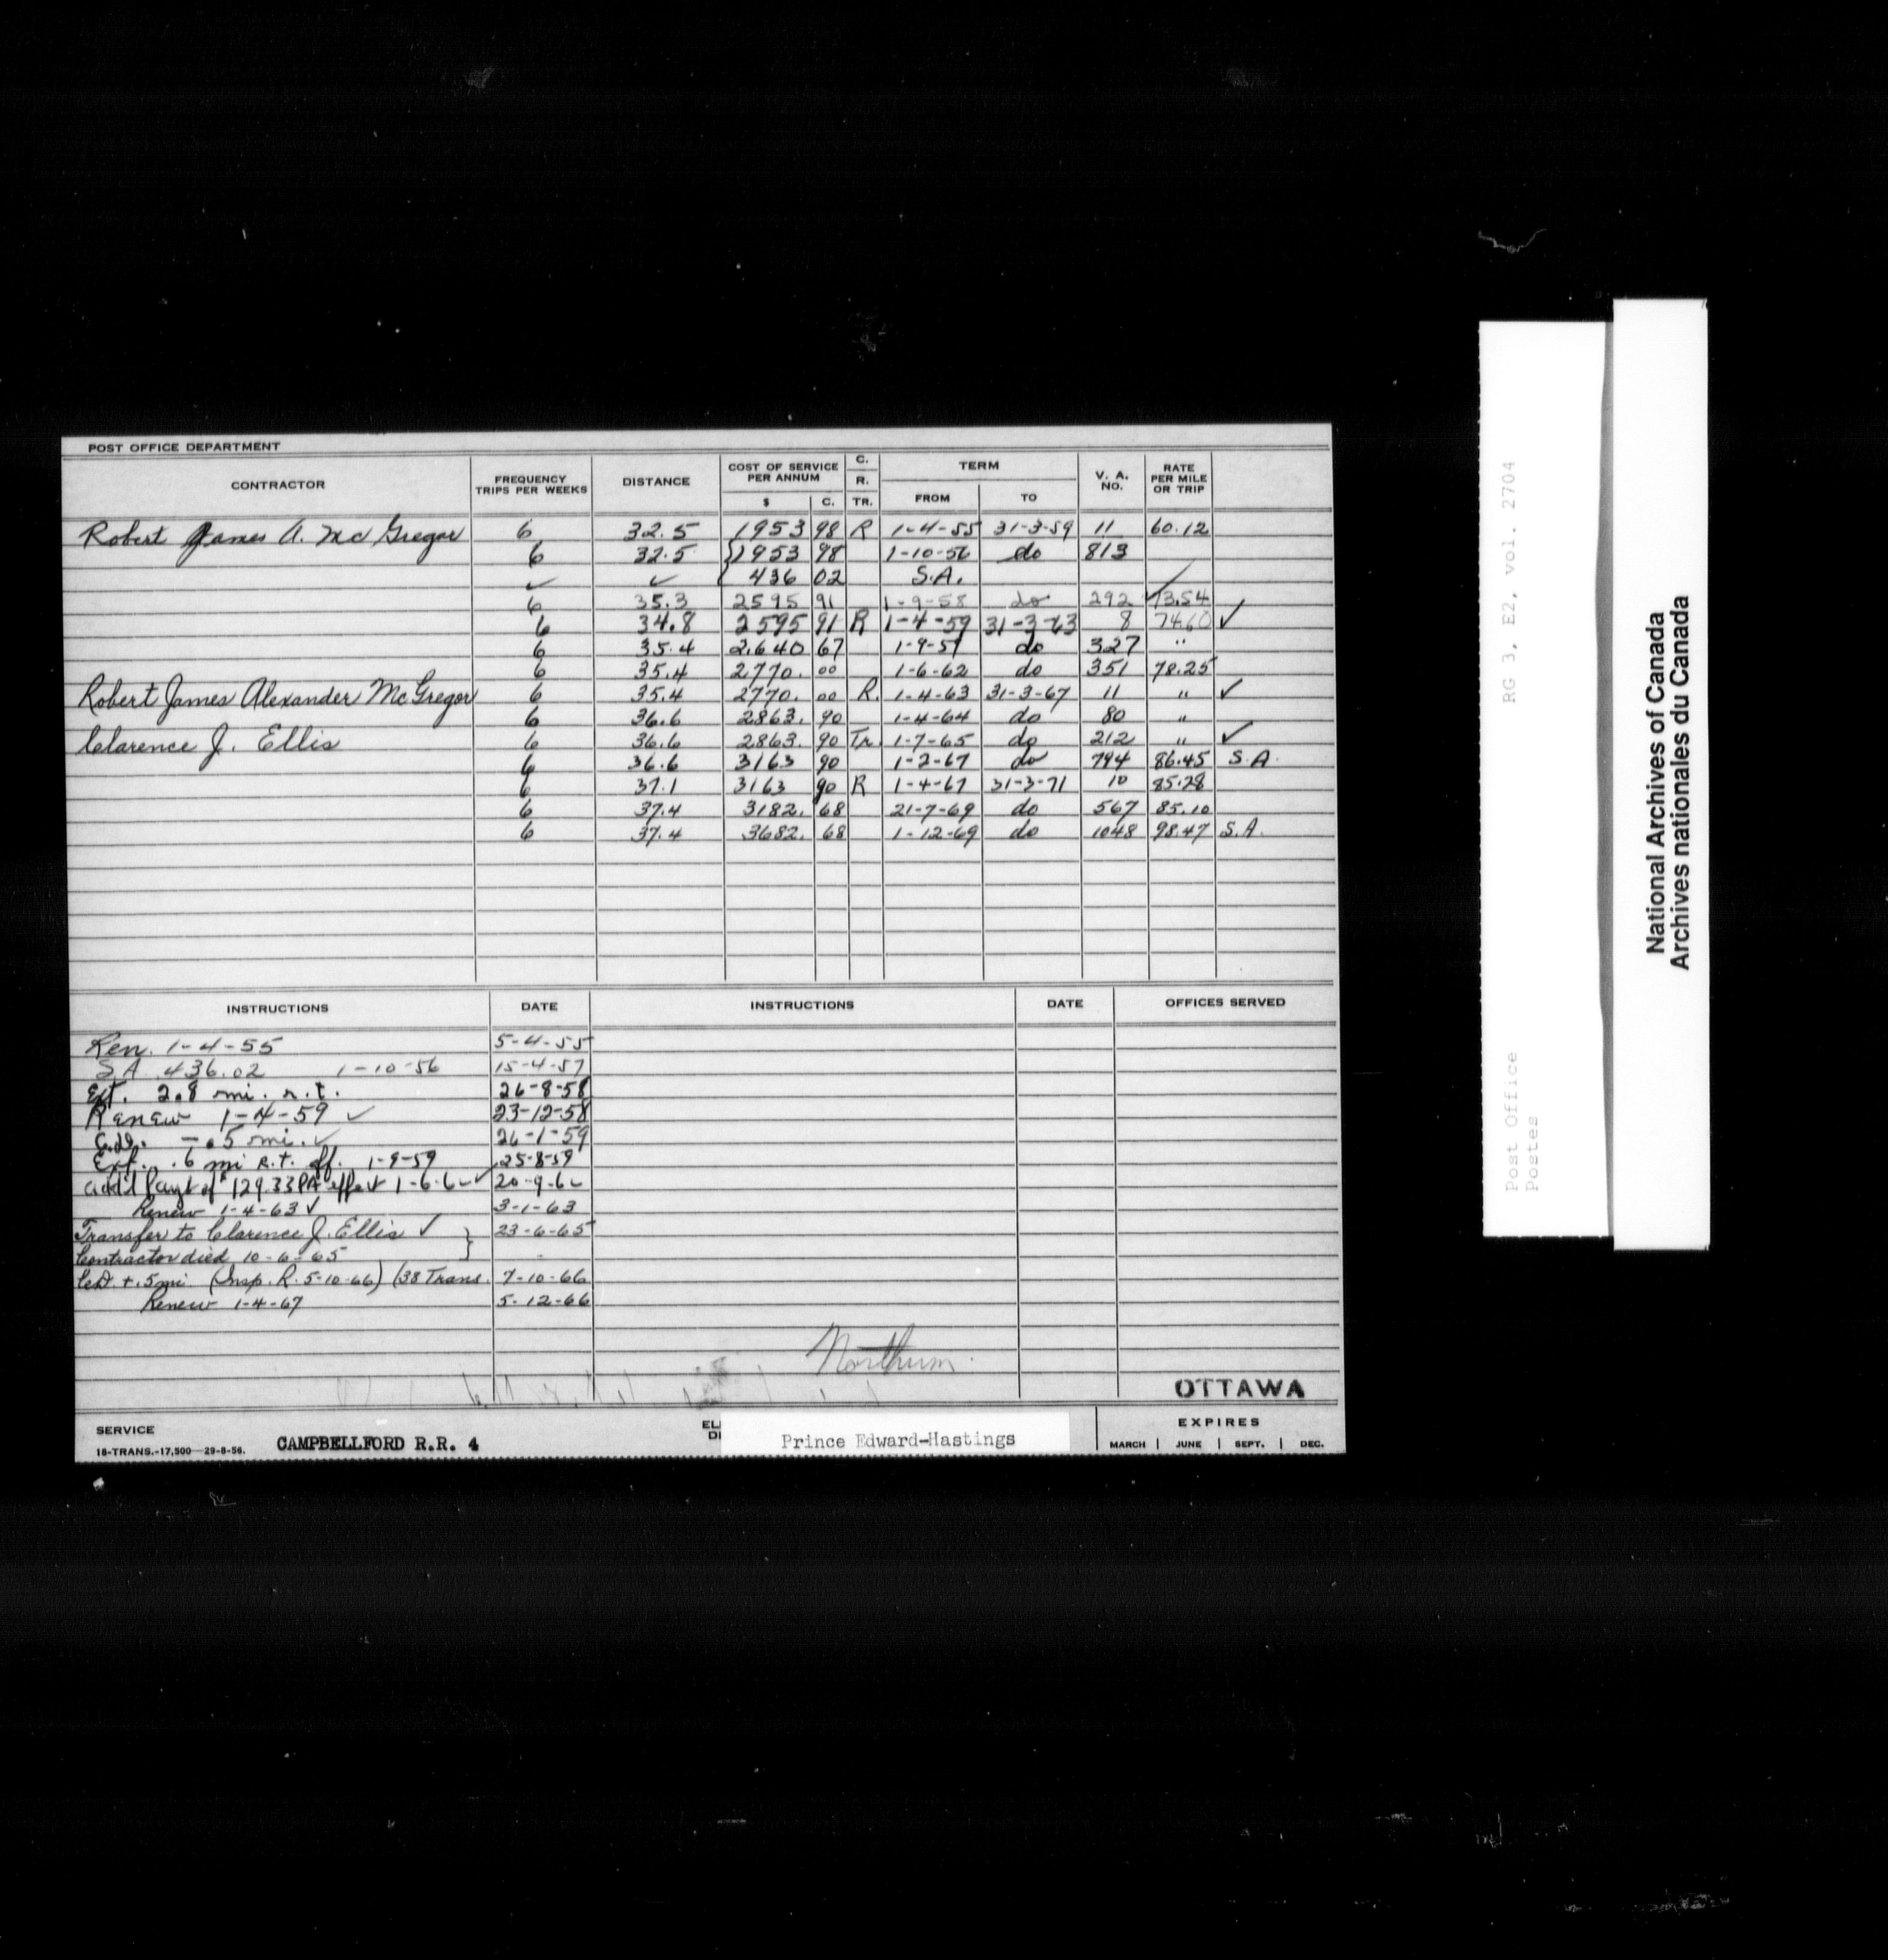 POST OFFICE DEPARTMENT
CONTRACTOR FREQUENCY TRIPS PER WEEKS DISTANCE COST OF SERVICE PER ANNUM $ C. C. R. TR. TERM FROM TO V. A. NO. RATE PER MILE OR TRIP
Robert James A. McGregor 6 32.5 1953 98 R 1-4-55 31-3-59 11 60.12
6 32.5 1953 98 1-10-56 do 813
✓ ✓ 436 02 S.A.
6 35.3 2595 91 1-9-58 do 292 73.54
6 34.8 2595 91 R 1-4-59 31-3-63 8 74.60 ✓
6 35.4 2640 67 1-9-59 do 327 "
6 35.4 2770. 00 1-6-62 do 351 78.25
Robert James Alexander McGregor 6 35.4 2770. 00 R. 1-4-63 31-3-67 11 " ✓
6 36.6 2863. 90 1-4-64 do 80 "
Clarence J. Ellis 6 36.6 2863. 90 Tr. 1-7-65 do 212 " ✓
6 36.6 3163 90 1-2-67 do 794 86.45 S.A.
6 37.1 3163 90 R 1-4-67 31-3-71 10 85.28
6 37.4 3182. 68 21-7-69 do 567 85.10
6 37.4 3682. 68 1-12-69 do 1048 98.47 S.A.
INSTRUCTIONS DATE INSTRUCTIONS DATE OFFICES SERVED
Ren. 1-4-55 5-4-55
S.A. 436.02 1-10-56 15-4-57
Ext. 2.8 mi. r.t. 26-8-58
Renew 1-4-59 ✓ 23-12-58
C.D. -.5 mi. ✓ 26-1-59
Ext. .6 mi R.T. eff. 1-9-59 25-8-59
Add'l Payt of 129.33 PA effect 1-6-62 ✓ 20-9-62
Renew 1-4-63 ✓ 3-1-63
Transfer to Clarence J. Ellis ✓ 23-6-65
Contractor died 10-6-65
C.D. +.5 mi (Insp. R. 5-10-66) (38 Trans. 7-10-66
Renew 1-4-67 5-12-66
Northum.
OTTAWA
SERVICE
18-TRANS.-17,500—29-8-56. CAMPBELLFORD R.R. 4
Prince Edward-Hastings
EXPIRES
MARCH | JUNE | SEPT. | DEC.
RG 3, E2, vol. 2704
Post Office
Postes
National Archives of Canada
Archives nationales du Canada